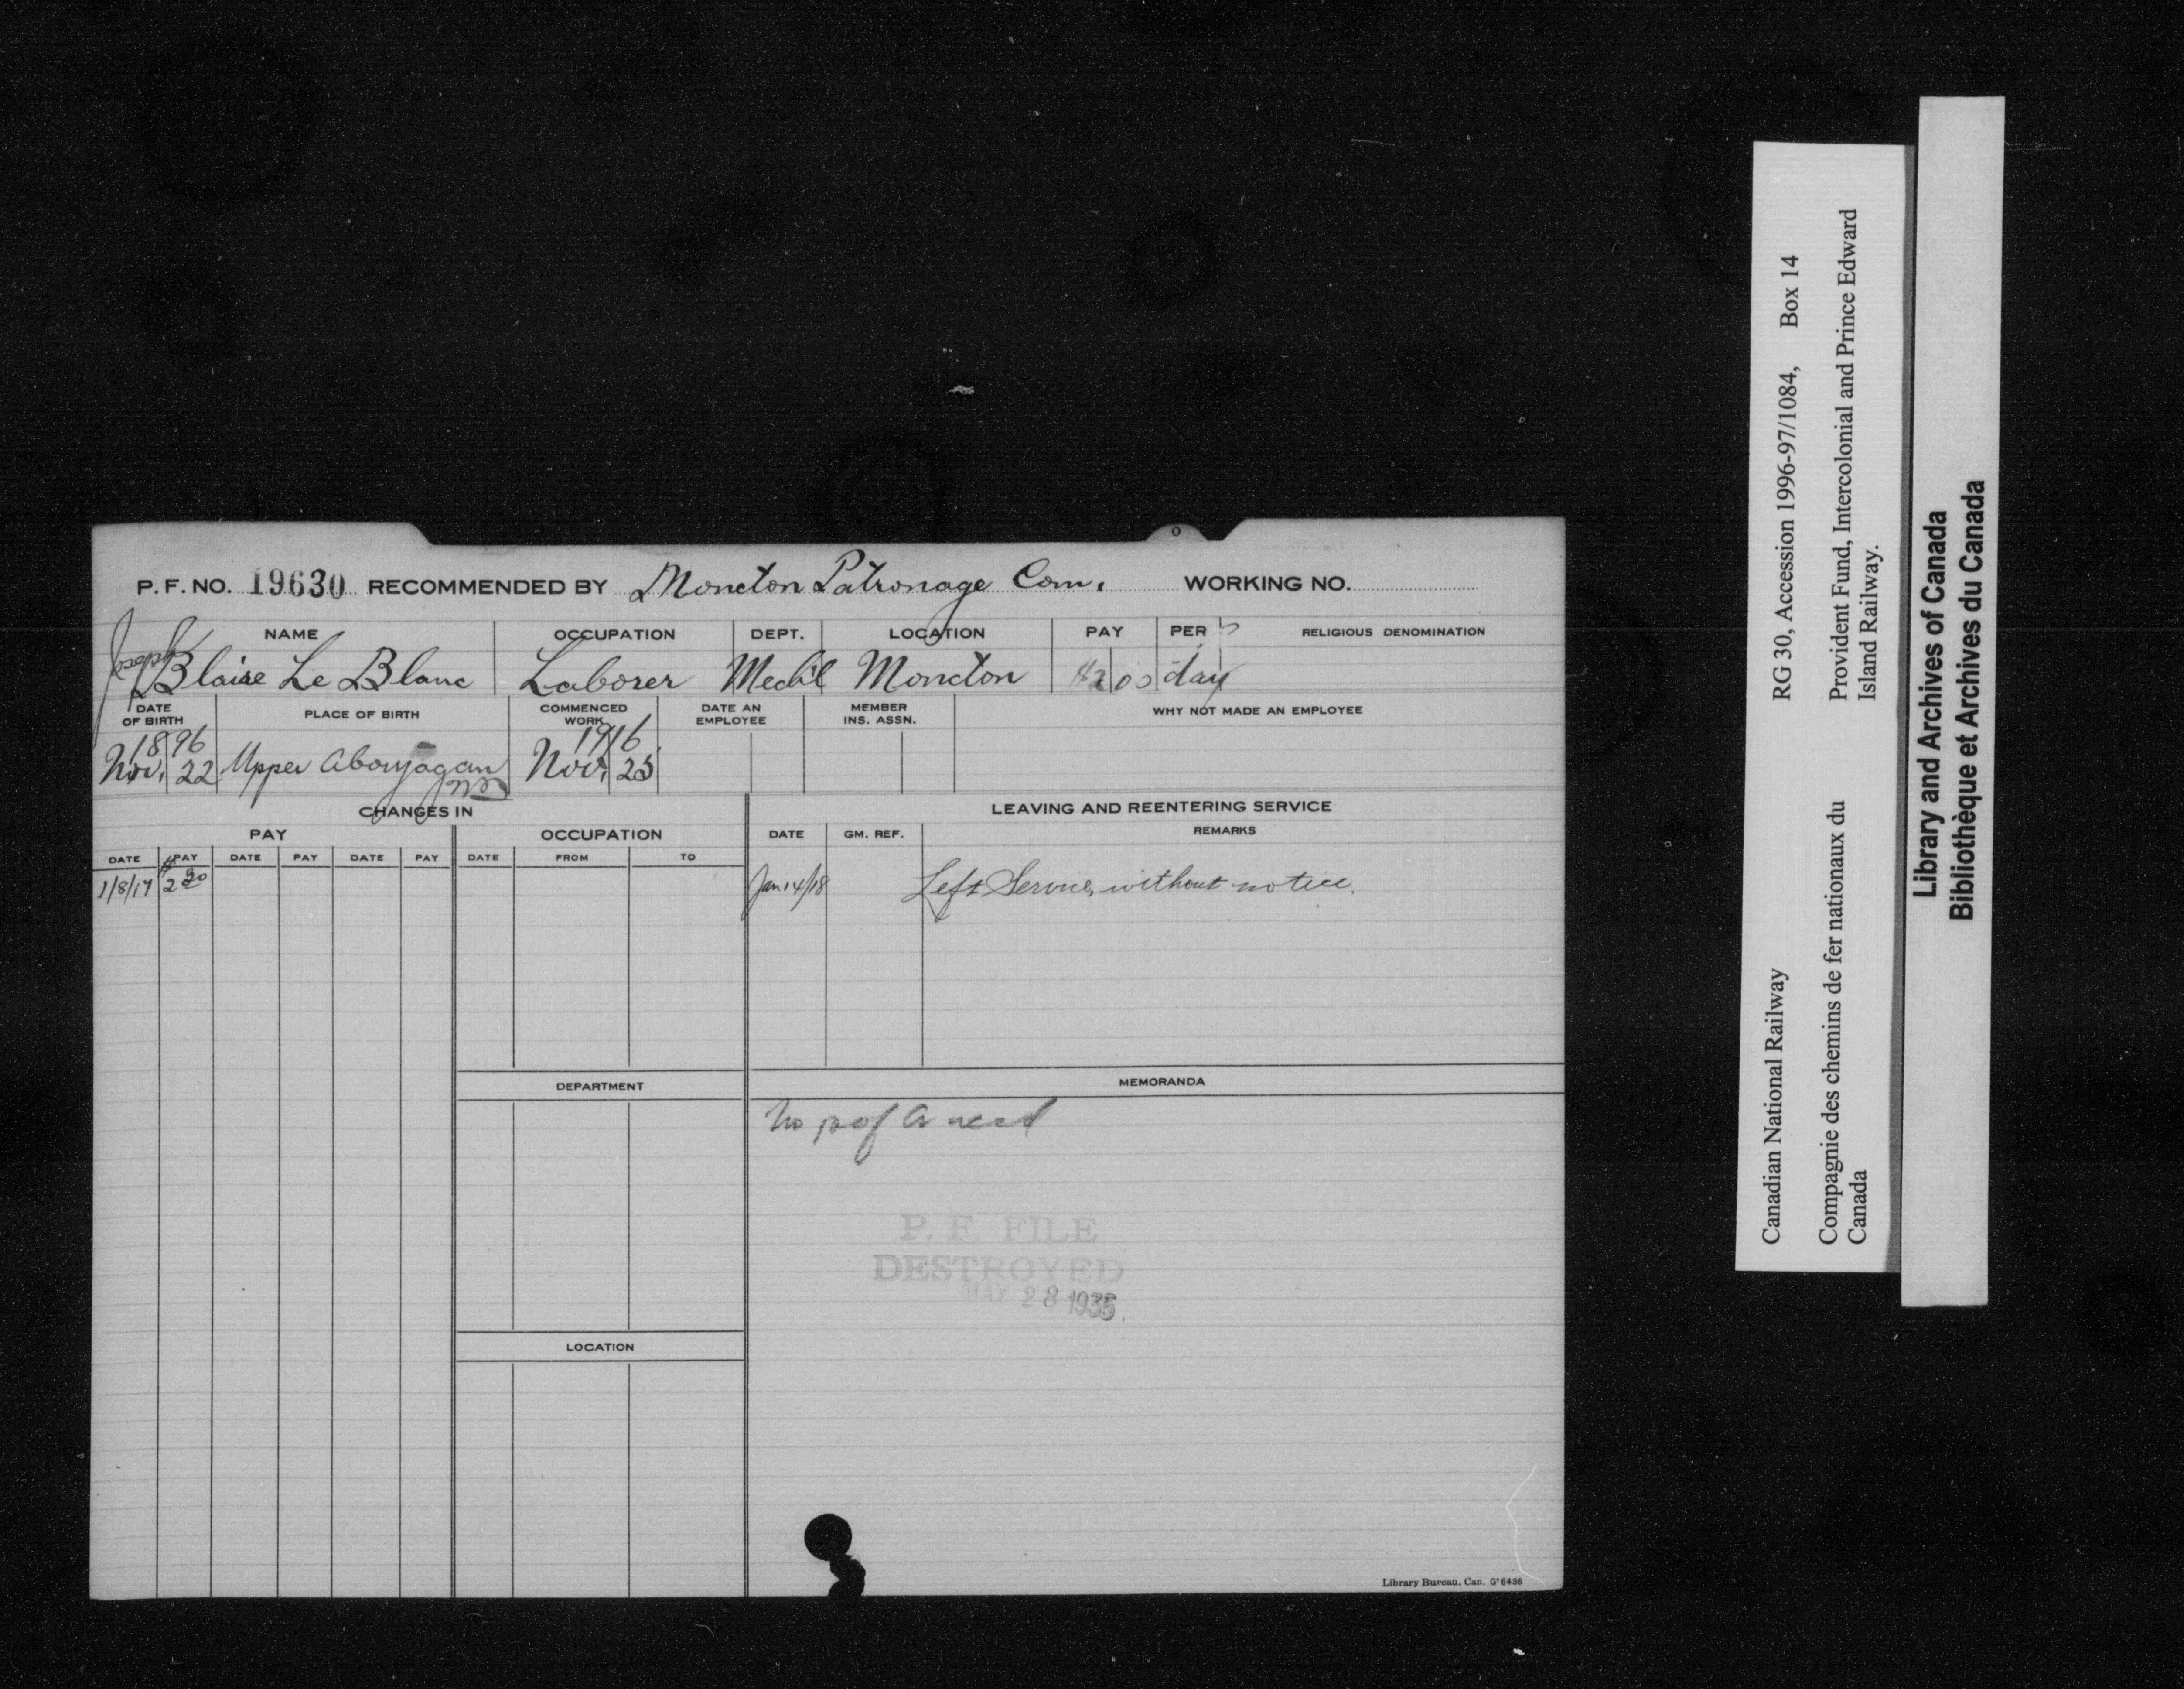 P.F. NO. 19630 RECOMMENDED BY Moncton Patronage Com. WORKING NO.
NAME OCCUPATION DEPT. LOCATION PAY PER RELIGIOUS DENOMINATION
Joseph
Blaise Le Blanc Laborer Mech'l Moncton $2 00 day
DATE OF BIRTH PLACE OF BIRTH COMMENCED WORK DATE AN EMPLOYEE MEMBER INS. ASSN. WHY NOT MADE AN EMPLOYEE
1896 1916
Nov. 22 Upper Aboujagan Nov. 25
NB
CHANGES IN LEAVING AND REENTERING SERVICE
PAY OCCUPATION DATE GM. REF. REMARKS
DATE PAY DATE PAY DATE PAY DATE FROM TO
1/8/17 $2 30 Jan 14/18 Left Service, without notice.
DEPARTMENT MEMORANDA
No p of a
P. F. FILE
DESTROYED
MAY 28 1935
LOCATION
Library Bureau. Can. G'6436
Canadian National Railway RG 30, Accession 1996-97/1084, Box 14
Compagnie des chemins de fer nationaux du Provident Fund, Intercolonial and Prince Edward
Canada Island Railway.
Library and Archives of Canada
Bibliothèque et Archives du Canada